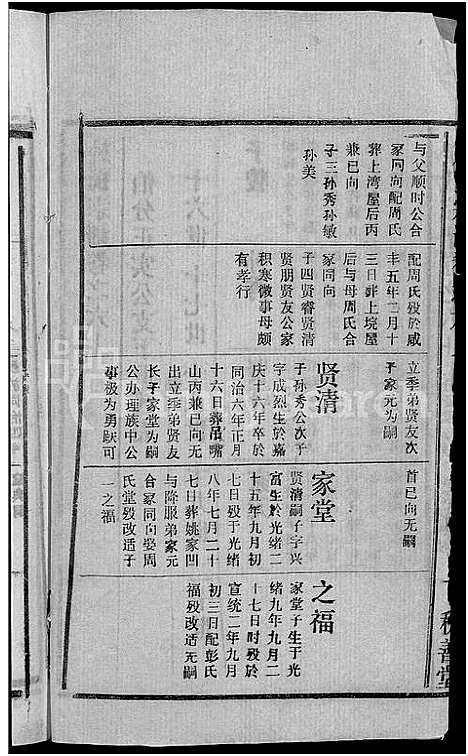 与父顺时公合
冢同向配周氏
葬上湾屋后丙
兼巳向
子三孙秀孙敏
孙美
配周氏殁於咸
丰五年二月十
三日葬上垸屋
后与母周氏合
冢同向
子四贤睿贤清
贤朋贤友公家
积寒微事母颇
有孝行
立季弟贤友次
子家元为嗣
贤清
子孙秀公次子
字成烈生於嘉
庆十六年卒於
同治六年正月
十六日葬吊嘴
山丙兼巳向无
出立季弟贤友
长子家堂为嗣
公办理族中公
事极为勇跃可
首巳向无嗣
家堂
贤清嗣子字兴
富生於光绪二
十五年九月初
七日殁于光绪
八年七月二十
七日葬姚家凹
与降服弟家元
合冢同向娶周
氏堂殁改适子
一之福
之福
家堂子生于光
绪九年九月二
十七日时殁於
宣统二年九月
初三日配彭氏
福殁改适无嗣
积善堂